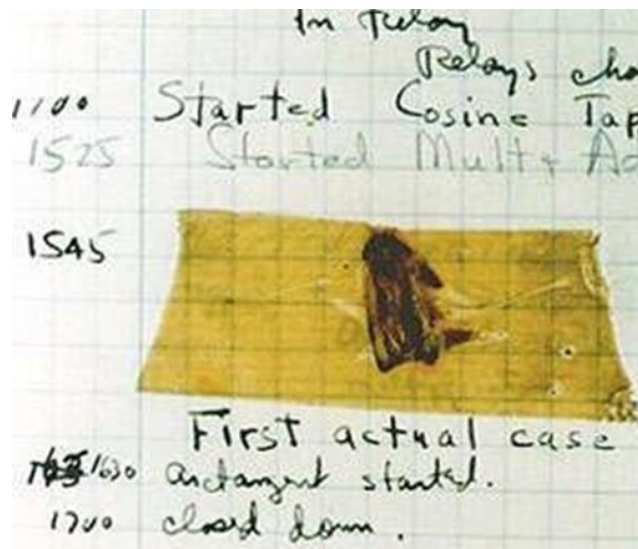 In Relay
Relays cha
1100 Started Cosine Tap
1525 Started Mult + Ad
1545
First actual case
1630 arctangent started.
1700 closed down.